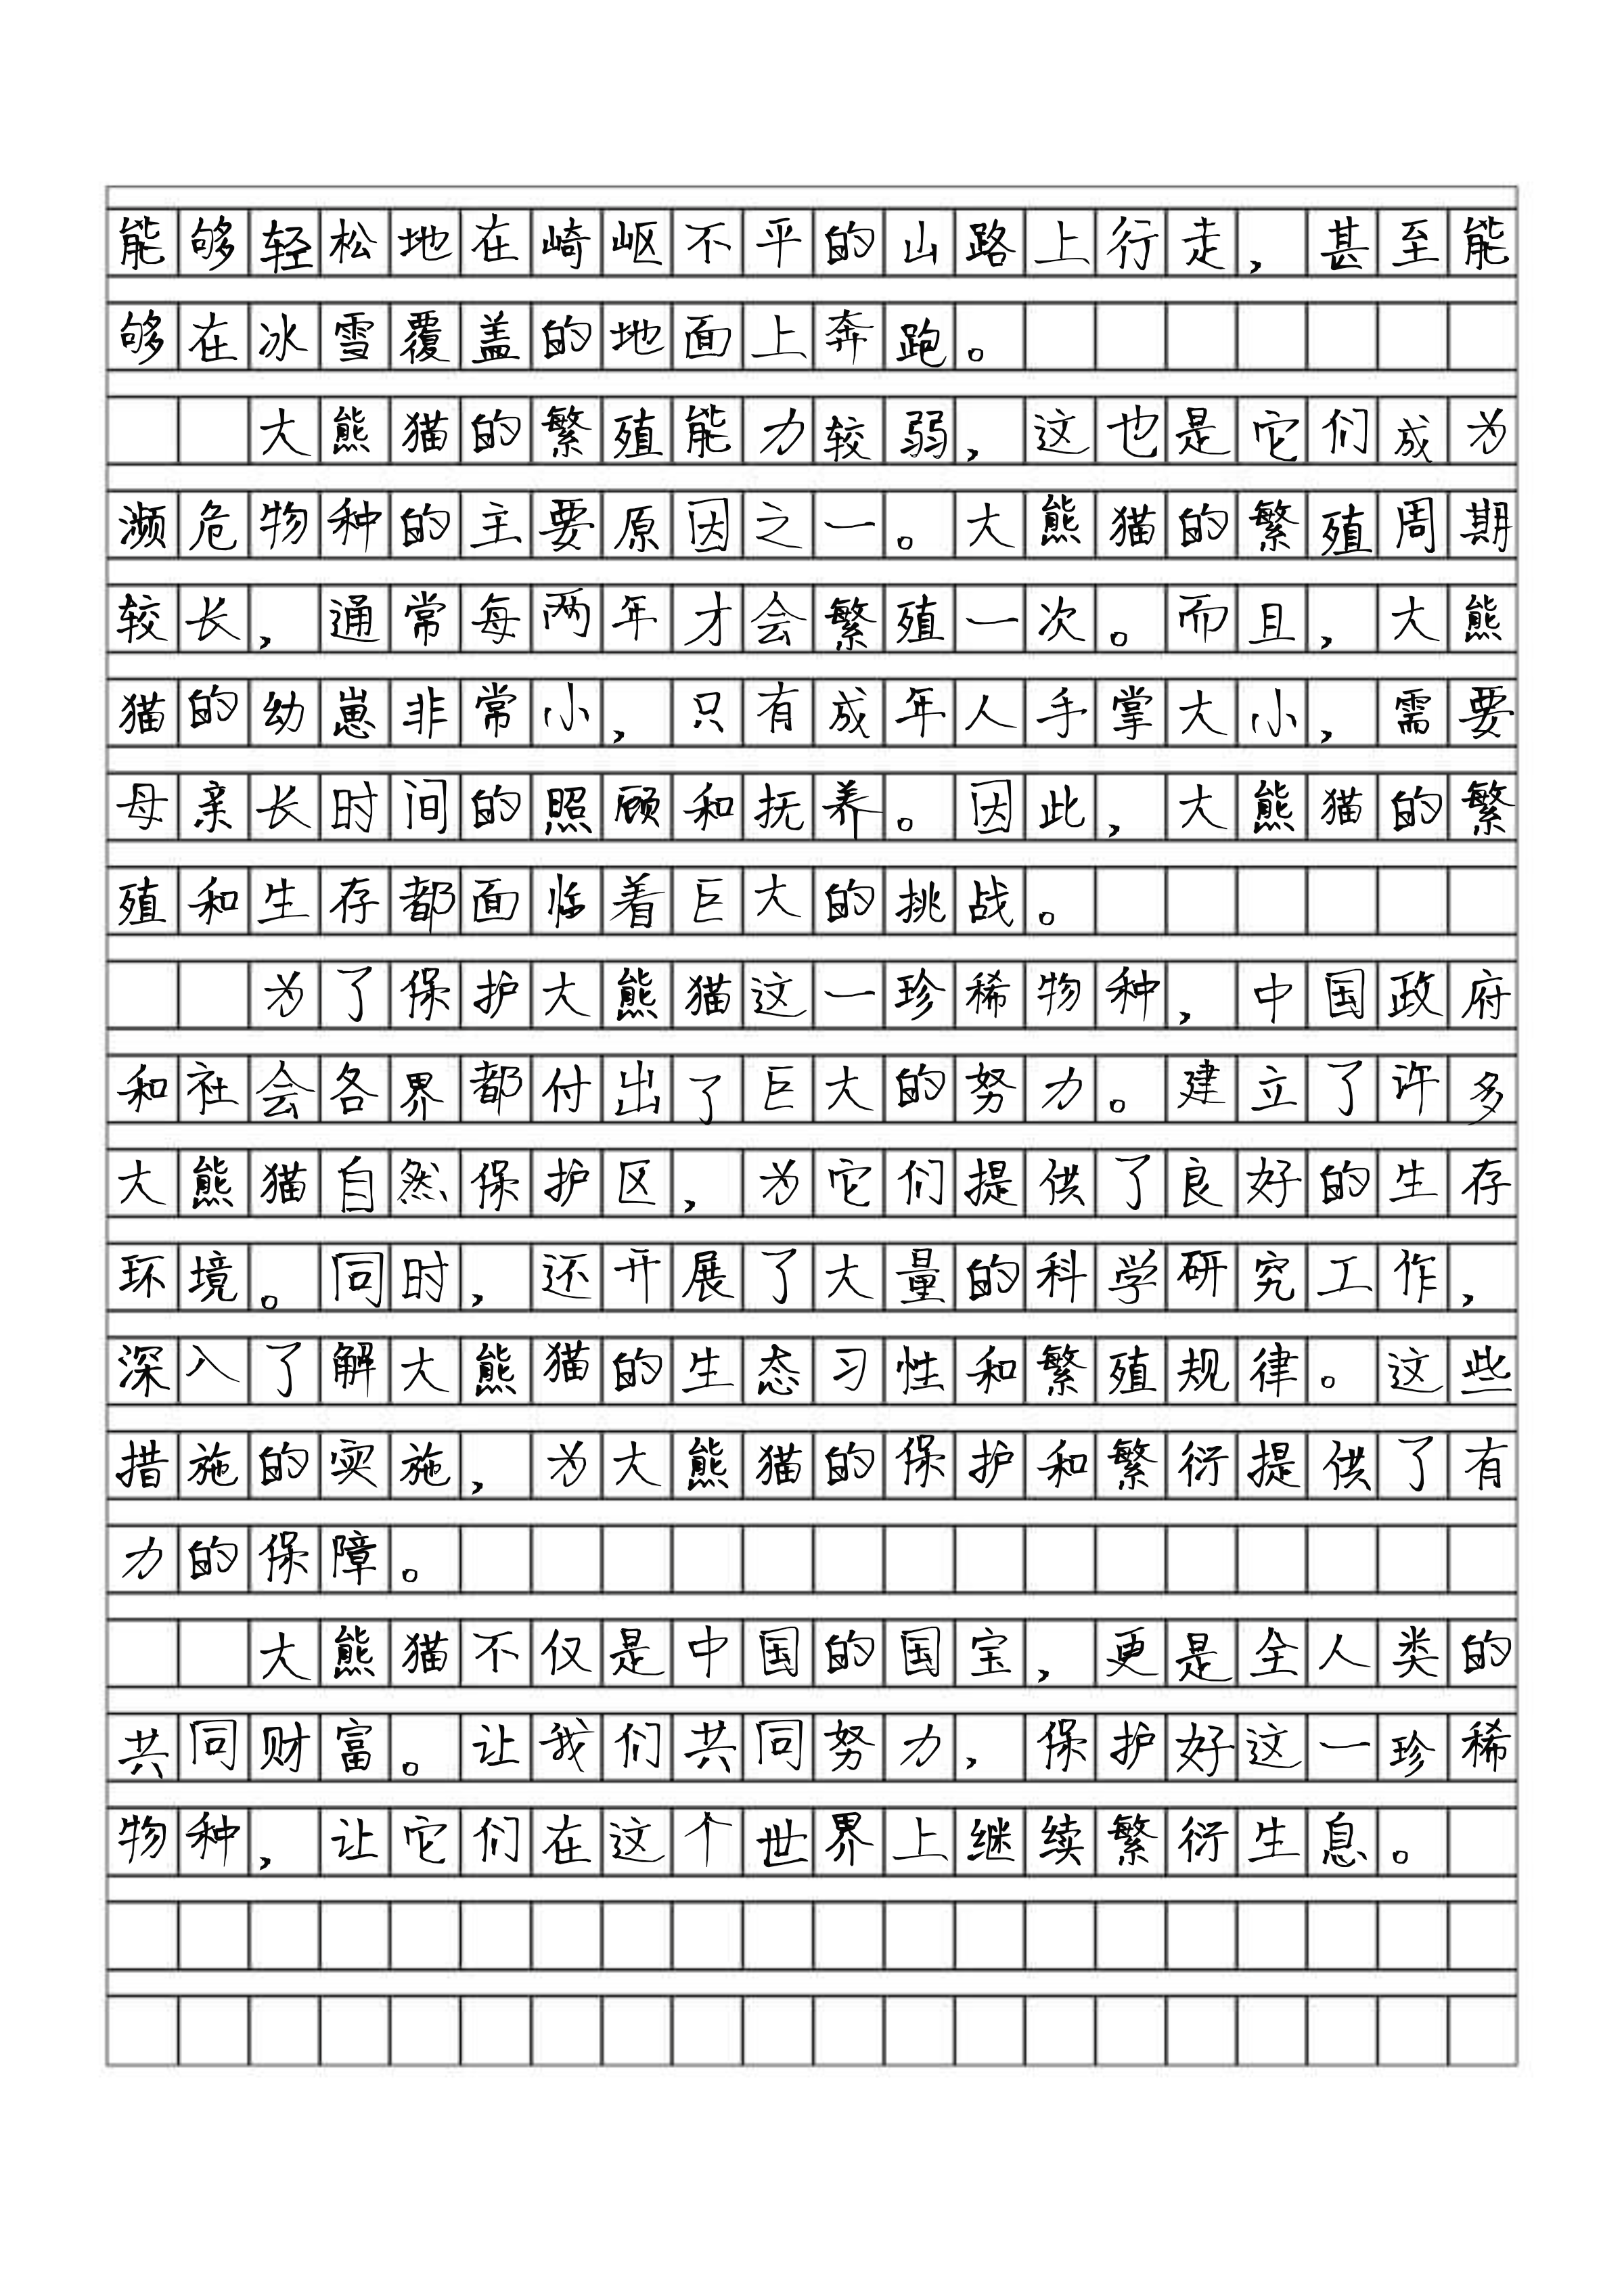 能够轻松地在崎岖不平的山路上行走，甚至能
够在冰雪覆盖的地面上奔跑。
大熊猫的繁殖能力较弱，这也是它们成为
濒危物种的主要原因之一。大熊猫的繁殖周期
较长，通常每两年才会繁殖一次。而且，大熊
猫的幼崽非常小，只有成年人手掌大小，需要
母亲长时间的照顾和抚养。因此，大熊猫的繁
殖和生存都面临着巨大的挑战。
为了保护大熊猫这一珍稀物种，中国政府
和社会各界都付出了巨大的努力。建立了许多
大熊猫自然保护区，为它们提供了良好的生存
环境。同时，还开展了大量的科学研究工作，
深入了解大熊猫的生态习性和繁殖规律。这些
措施的实施，为大熊猫的保护和繁衍提供了有
力的保障。
大熊猫不仅是中国的国宝，更是全人类的
共同财富。让我们共同努力，保护好这一珍稀
物种，让它们在这个世界上继续繁衍生息。